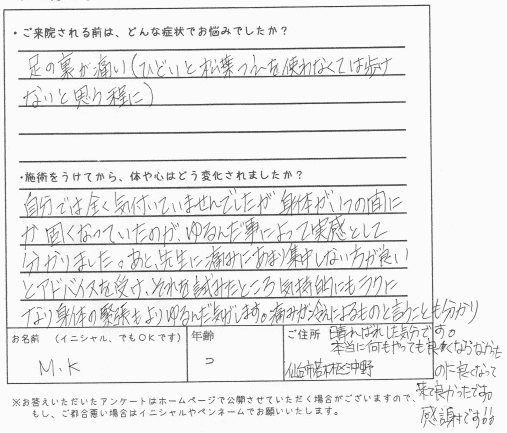 ・ご来院される前は、どんな症状でお悩みでしたか？
足の裏が痛い(ひどいと松葉つえを使わなくては歩け
ないと思う程に)
・施術をうけてから、体や心はどう変化されましたか？
自分では全く気付いていませんでしたが身体がいつの間に
か固くなっていたのが、ゆるんだ事によって実感として
分かりました。あと、先生に痛みにあまり集中しない方が良い
とアドバイスを受け、それを試みたところ気持的にもラクに
なり身体の緊張もよりゆるんだ気がします。痛みが冷によるものと言うことも分かり
晴ればれした気分です。
本当に何もやっても良くならなかったのに良くなって
来て良かったです。
感謝です!!
お名前 （イニシャル、でもOKです）
M.K
年齢
ご住所
仙台市若林区沖野
※お答えいただいたアンケートはホームページで公開させていただく場合がございますので、
もし、ご都合悪い場合はイニシャルやペンネームでお願いいたします。